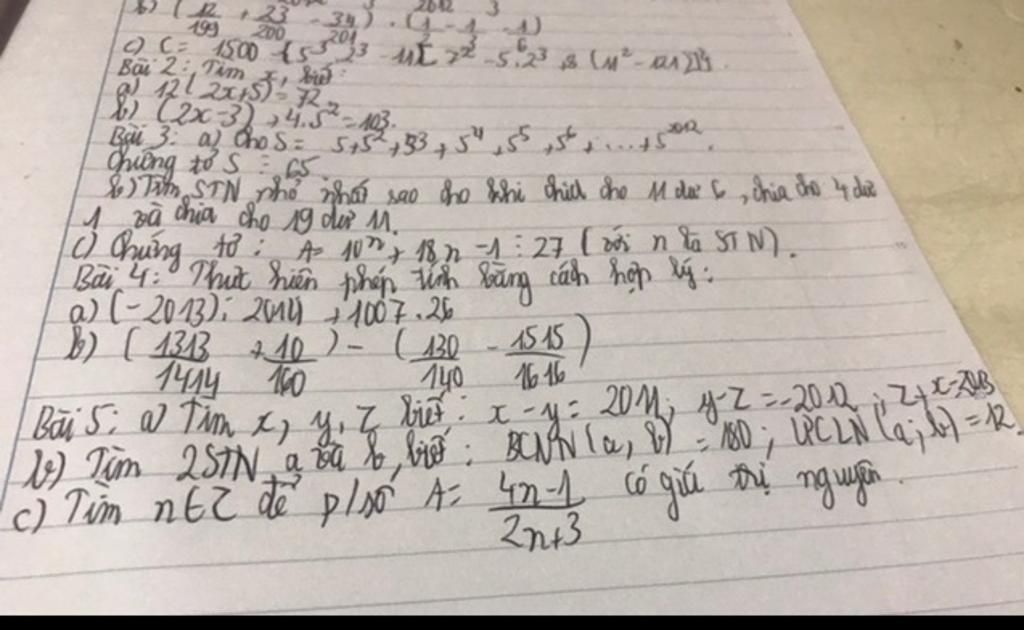 b) (12/199 + 23/200 - 34/201) . (1/2 - 1/3 - 1/6)
c) C = 1500 - {5³.2³ - 11[7² - 5.2³ + 8(11² - 121)]}
Bài 2: Tìm x, biết:
a) 12(2x+5) = 72
b) (2x-3) + 4.5² = 103.
Bài 3: a) Cho S = 5+5²+5³+5⁴+5⁵+5⁶+...+5²⁰¹².
Chứng tỏ S ⋮ 65
b) Tìm STN nhỏ nhất sao cho khi chia cho 11 dư 6, chia cho 4 dư
1 và chia cho 19 dư 11.
c) Chứng tỏ: A = 10ⁿ + 18n - 1 ⋮ 27 (với n là STN).
Bài 4: Thực hiện phép tính bằng cách hợp lý:
a) (-2013): 2014 + 1007.26
b) (1313/1414 + 10/160) - (130/140 - 1515/1616)
Bài 5: a) Tìm x, y, z biết: x - y = 2011; y-z = -2012; z+x=2013
b) Tìm 2STN a và b, biết: BCNN(a, b) = 180; ƯCLN(a; b) = 12.
c) Tìm n∈Z để p/số A = 4n-1/2n+3 có giá trị nguyên.